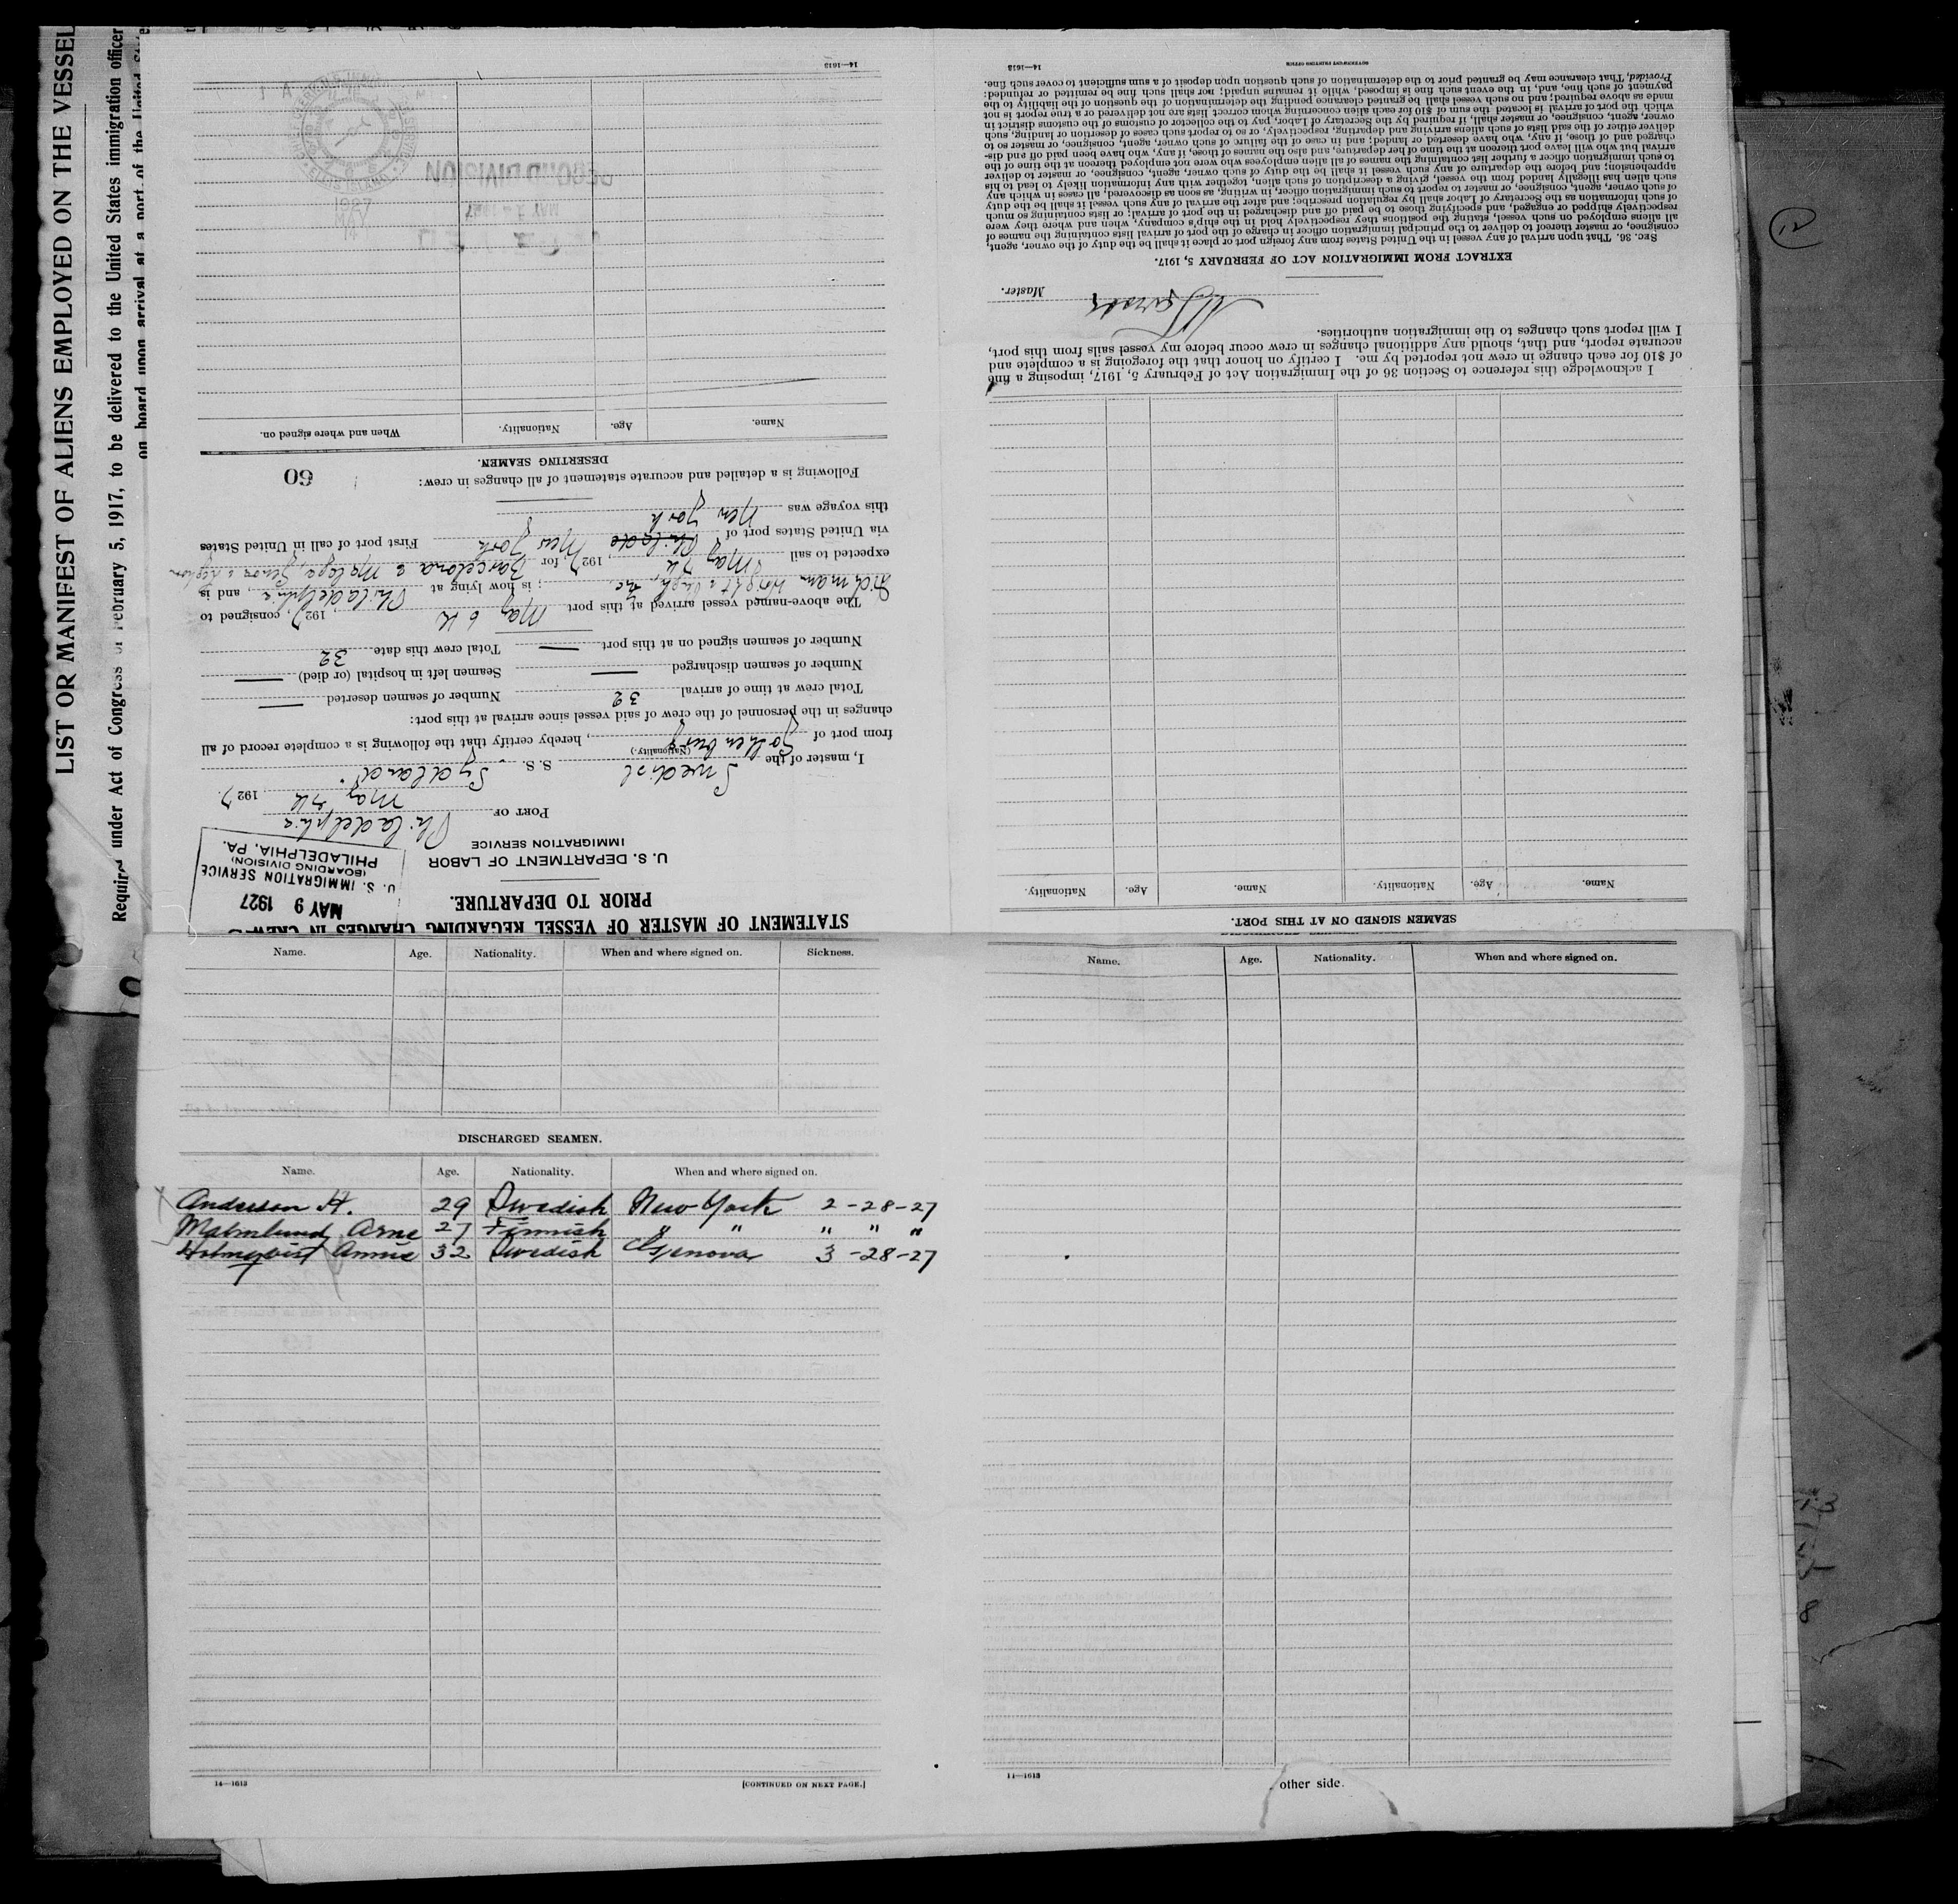 LIST OR MANIFEST OF ALIENS EMPLOYED ON THE VESSEL
Required under Act of Congress of February 5, 1917, to be delivered to the United States immigration officer
on board upon arrival at a port of the United
STATEMENT OF MASTER OF VESSEL REGARDING CHANGES IN CREW
PRIOR TO DEPARTURE.
MAY 9 1927
U. S. IMMIGRATION SERVICE
(BOARDING DIVISION)
PHILADELPHIA, PA.
U. S. DEPARTMENT OF LABOR
IMMIGRATION SERVICE
PORT OF Philadelphia
May 7th 1927.
I, master of the Swedish S. S. Sydland.
(Nationality.)
from port of Gothenburg, hereby certify that the following is a complete record of all
changes in the personnel of the crew of said vessel since arrival at this port:
Total crew at time of arrival 32 Number of seamen deserted —
Number of seamen discharged — Seamen left in hospital (or died) —
Number of seamen signed on at this port — Total crew this date 32
The above-named vessel arrived at this port May 6th 1927, consigned to
Wright &, Inc.; is now lying at Philadelphia, and is
expected to sail May 7th 1927, for Barcelona & Malaga, Genoa &
via United States port of Philade New York First port of call in United States
this voyage was New York
Following is a detailed and accurate statement of all changes in crew: 60
DESERTING SEAMEN.
Name. Age. Nationality. When and where signed on.
SECOND DIVISION
MAY
1927
MAY
14—1613
SEAMEN SIGNED ON AT THIS PORT.
Name. Age. Nationality. Name. Age. Nationality.
I acknowledge this reference to Section 36 of the Immigration Act of February 5, 1917, imposing a fine
of $10 for each change in crew not reported by me. I certify on honor that the foregoing is a complete and
accurate report, and that, should any additional changes in crew occur before my vessel sails from this port,
I will report such changes to the immigration authorities.
Master.
EXTRACT FROM IMMIGRATION ACT OF FEBRUARY 5, 1917.
SEC. 36. That upon arrival of any vessel in the United States from any foreign port or place it shall be the duty of the owner, agent,
consignee, or master thereof to deliver to the principal immigration officer in charge of the port of arrival lists containing the names of
all aliens employed on such vessel, stating the positions they respectively hold in the ship's company, when and where they were
respectively shipped or engaged, and specifying those to be paid off and discharged in the port of arrival; or lists containing so much
of such information as the Secretary of Labor shall by regulation prescribe; and after the arrival of any such vessel it shall be the duty
of such owner, agent, consignee, or master to report to such immigration officer, in writing, as soon as discovered, all cases in which any
such alien has illegally landed from the vessel, giving a description of such alien, together with any information likely to lead to his
apprehension; and before the departure of any such vessel it shall be the duty of such owner, agent, consignee, or master to deliver
to such immigration officer a further list containing the names of all alien employees who were not employed thereon at the time of the
arrival but who will leave port thereon at the time of her departure, and also the names of those, if any, who have been paid off and dis-
charged and of those, if any, who have deserted or landed; and in case of the failure of such owner, agent, consignee, or master so to
deliver either of the said lists of such aliens arriving and departing, respectively, or so to report such cases of desertion or landing, such
owner, agent, consignee, or master shall, if required by the Secretary of Labor, pay to the collector of customs of the customs district in
which the port of arrival is located the sum of $10 for each alien concerning whom correct lists are not delivered or a true report is not
made as above required; and no such vessel shall be granted clearance pending the determination of the question of the liability to the
payment of such fine, and, in the event such fine is imposed, while it remains unpaid; nor shall such fine be remitted or refunded:
Provided, That clearance may be granted prior to the determination of such question upon deposit of a sum sufficient to cover such fine.
14—1613
GOVERNMENT PRINTING OFFICE
Name. Age. Nationality. When and where signed on. Sickness.
DISCHARGED SEAMEN.
Name. Age. Nationality. When and where signed on.
Anderson H. 29 Swedish New York 2-28-27
Malmlund Arne 27 Finnish " " " " "
Holmqvist Annie 32 Swedish Genova 3-28-27
14—1613
[CONTINUED ON NEXT PAGE.]
Name. Age. Nationality. When and where signed on.
11—1613
other side.
12